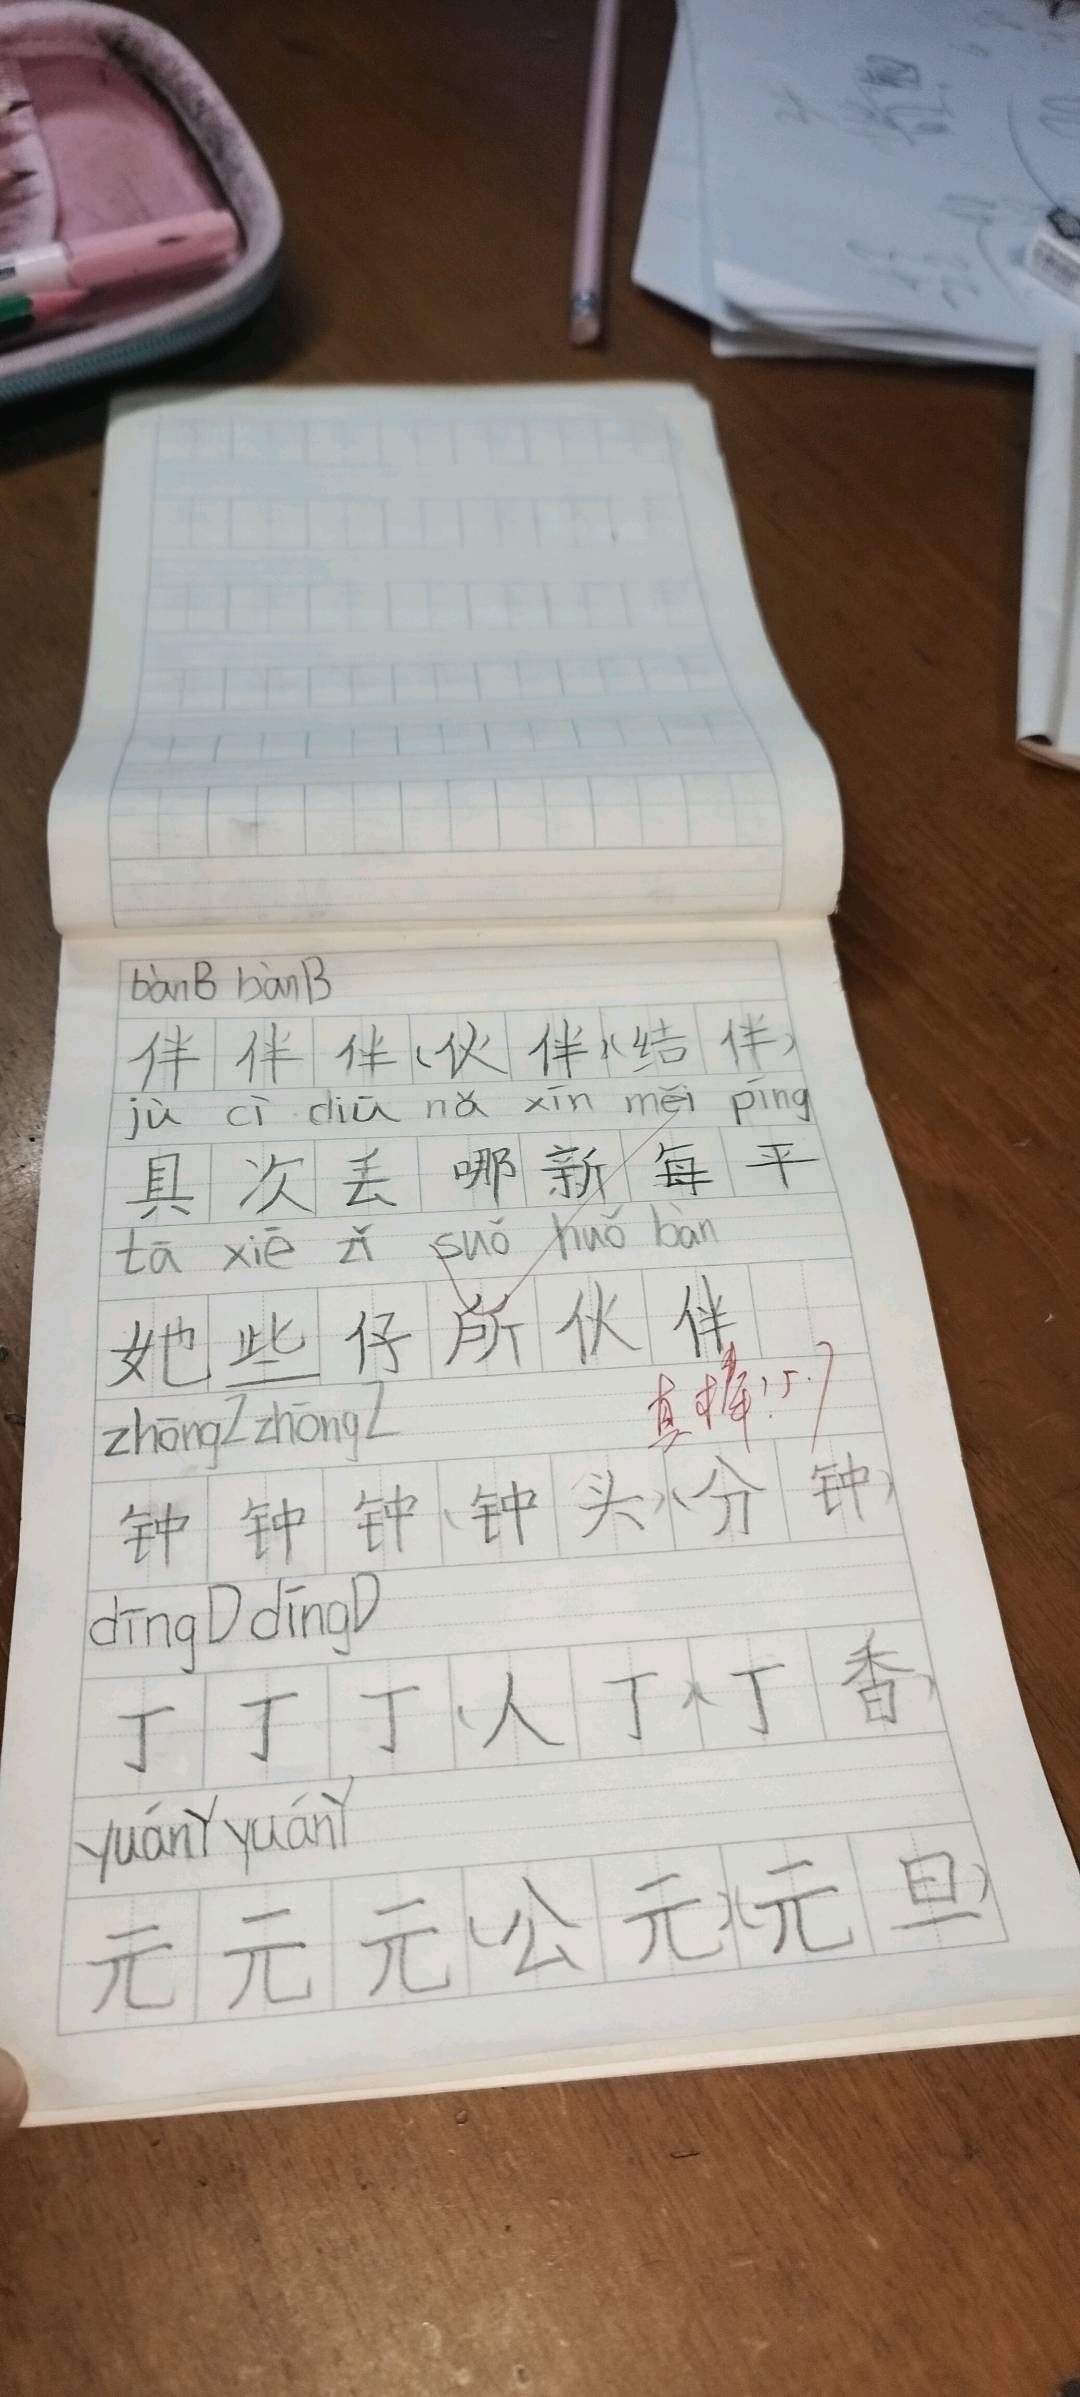 bànB bànB
伴伴伴(伙伴)(结伴)
jù cì diū nǎ xīn měi píng
具次丢哪新每平
tā xiē zǐ suǒ huǒ bàn
她些仔所伙伴
真棒!5.7
zhōngZ zhōngZ
钟钟钟(钟头)(分钟)
dīngD dīngD
丁丁丁(人丁)(丁香)
yuánY yuánY
元元元(公元)(元旦)